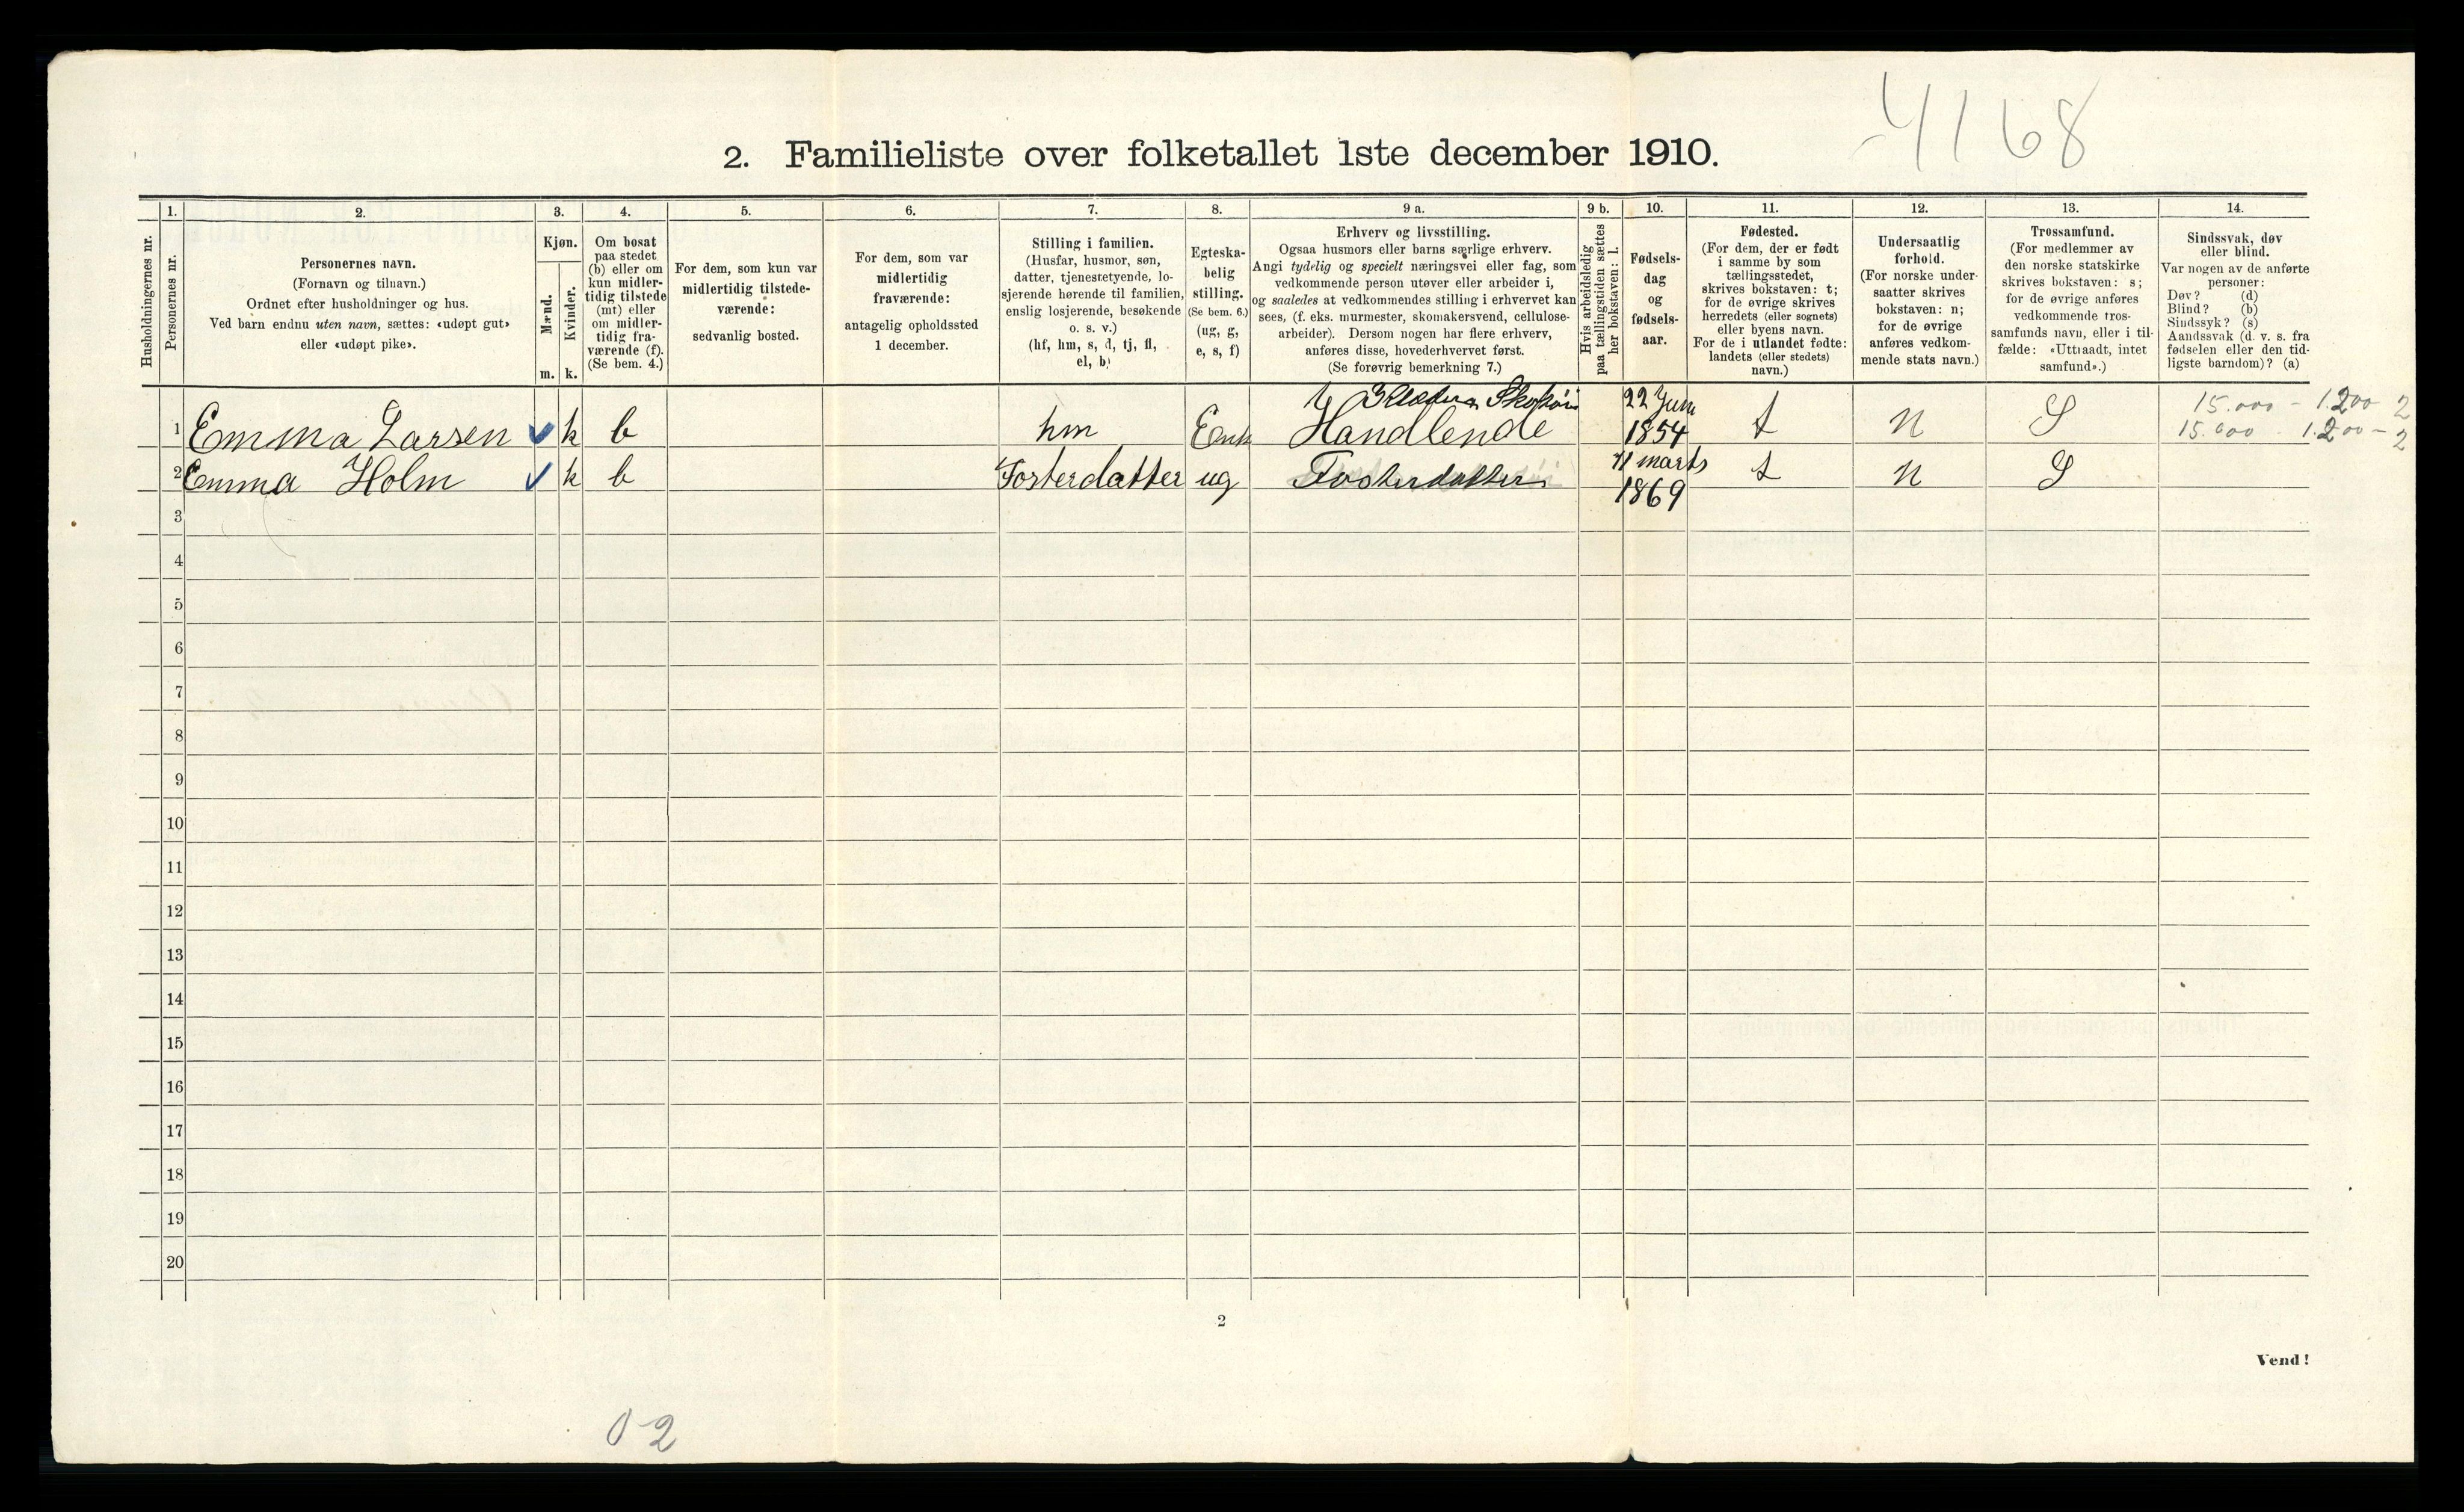 4168
2. Familieliste over folketallet 1ste december 1910.
Husholdningernes nr.
1.
Personernes nr.
2.
Personernes navn.
(Fornavn og tilnavn.)
Ordnet efter husholdninger og hus.
Ved barn endnu uten navn, sættes: «udøpt gut»
eller «udøpt pike».
3.
Kjøn.
Mænd.
Kvinder.
m. k.
4.
Om bosat
paa stedet
(b) eller om
kun midler-
tidig tilstede
(mt) eller
om midler-
tidig fra-
værende (f).
(Se bem. 4.)
5.
For dem, som kun var
midlertidig tilstede-
værende:
sedvanlig bosted.
6.
For dem, som var
midlertidig
fraværende:
antagelig opholdssted
1 december.
7.
Stilling i familien.
(Husfar, husmor, søn,
datter, tjenestetyende, lo-
sjerende hørende til familien,
enslig losjerende, besøkende
o. s. v.)
(hf, hm, s, d, tj, fl,
el, b)
8.
Egteska-
belig
stilling.
(Se bem. 6.)
(ug, g,
e, s, f)
9 a.
Erhverv og livsstilling.
Ogsaa husmors eller barns særlige erhverv.
Angi tydelig og specielt næringsvei eller fag, som
vedkommende person utøver eller arbeider i,
og saaledes at vedkommendes stilling i erhvervet kan
sees, (f. eks. murmester, skomakersvend, cellulose-
arbeider). Dersom nogen har flere erhverv,
anføres disse, hovederhvervet først.
(Se forøvrig bemerkning 7.)
9 b.
Hvis arbeidsledig
paa tællingstiden sættes
her bokstaven: l.
10.
Fødsels-
dag
og
fødsels-
aar.
11.
Fødested.
(For dem, der er født
i samme by som
tællingstedet,
skrives bokstaven: t;
for de øvrige skrives
herredets (eller sognets)
eller byens navn.
For de i utlandet fødte:
landets (eller stedets)
navn.)
12.
Undersaatlig
forhold.
(For norske under-
saatter skrives
bokstaven: n;
for de øvrige
anføres vedkom-
mende stats navn.)
13.
Trossamfund.
(For medlemmer av
den norske statskirke
skrives bokstaven: s;
for de øvrige anføres
vedkommende tros-
samfunds navn, eller i til-
fælde: «Uttraadt, intet
samfund».)
14.
Sindssvak, døv
eller blind.
Var nogen av de anførte
personer:
Døv? (d)
Blind? (b)
Sindssyk? (s)
Aandssvak (d. v. s. fra
fødselen eller den tid-
ligste barndom)? (a)
22 Juni 15.000 - 1.200 2
1 Emma Larsen k b hm Enk Handlende 1854 t n S 15.000 1.200 - 2
2 Emma Holm k b Fosterdatter ug Fosterdatter 11 marts t n S
1869
3
4
5
6
7
8
9
10
11
12
13
14
15
16
17
18
19
20
2
Vend!
0-2